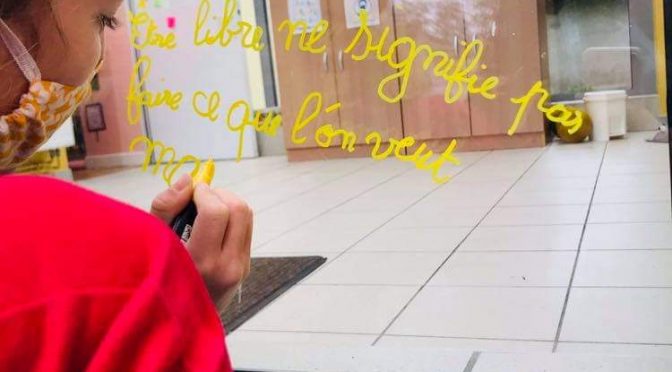 Être libre ne signifie pas
faire ce que l'on veut
mai